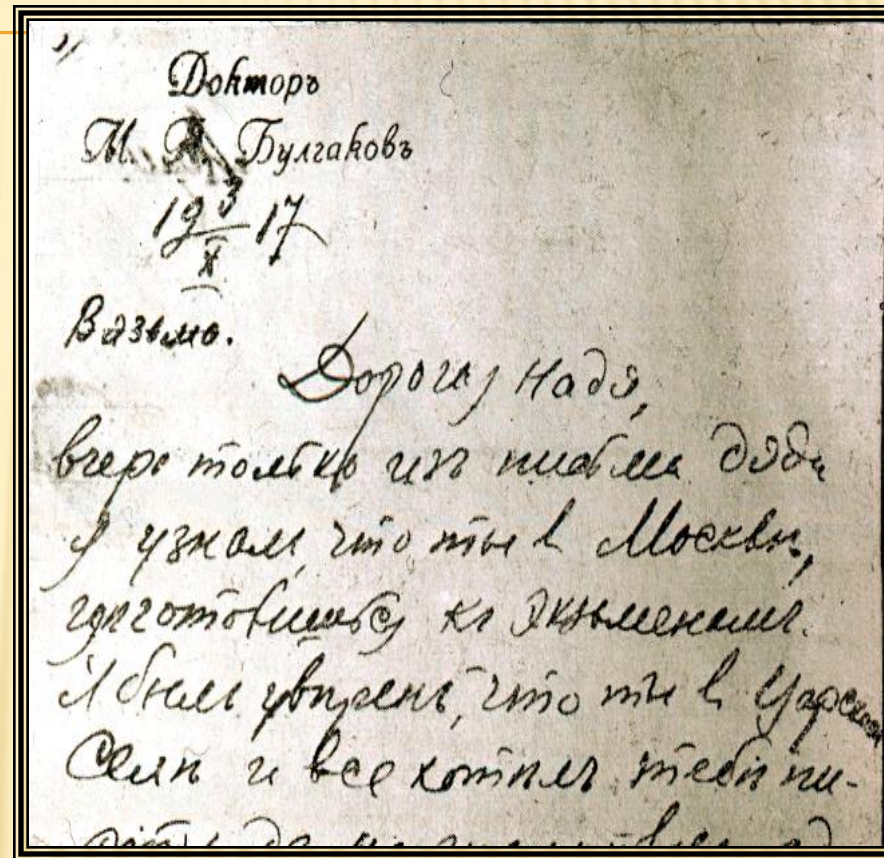 Докторъ
М. А. Булгаковъ
19 3/X 17
Вязьма.
Дорогая Надя,
вчера только изъ письма дяди
я узналъ, что ты въ Москвѣ,
гдѣ готовишься къ экзаменамъ.
Я былъ увѣренъ, что ты въ Царскомъ
Селѣ и все хотѣлъ тебѣ пи-